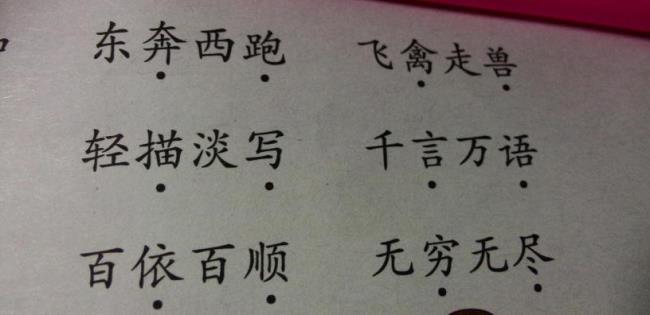 东奔西跑 飞禽走兽
轻描淡写 千言万语
百依百顺 无穷无尽